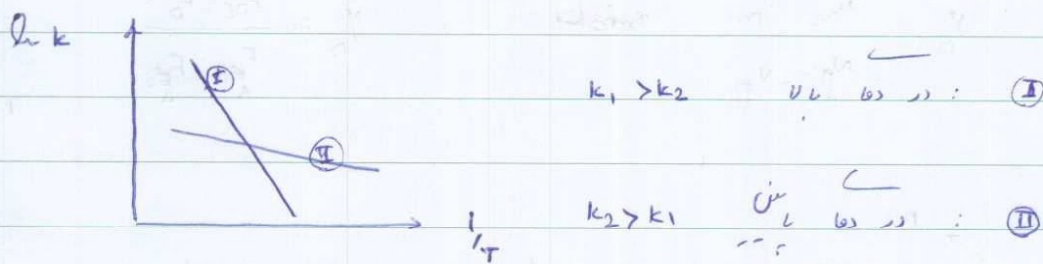 ln k
I
II
1/T
I : در دما بالا k₁ > k₂
II : در دما پایین k₂ > k₁